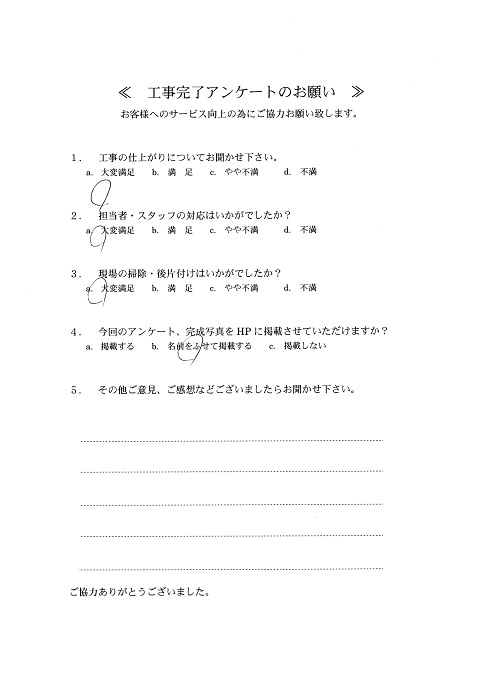 ≪ 工事完了アンケートのお願い ≫
お客様へのサービス向上の為にご協力お願い致します。
1. 工事の仕上がりについてお聞かせ下さい。
a. 大変満足 b. 満 足 c. やや不満 d. 不満
2. 担当者・スタッフの対応はいかがでしたか？
a. 大変満足 b. 満 足 c. やや不満 d. 不満
3. 現場の掃除・後片付けはいかがでしたか？
a. 大変満足 b. 満 足 c. やや不満 d. 不満
4. 今回のアンケート、完成写真をHPに掲載させていただけますか？
a. 掲載する b. 名前をふせて掲載する c. 掲載しない
5. その他ご意見、ご感想などございましたらお聞かせ下さい。
ご協力ありがとうございました。